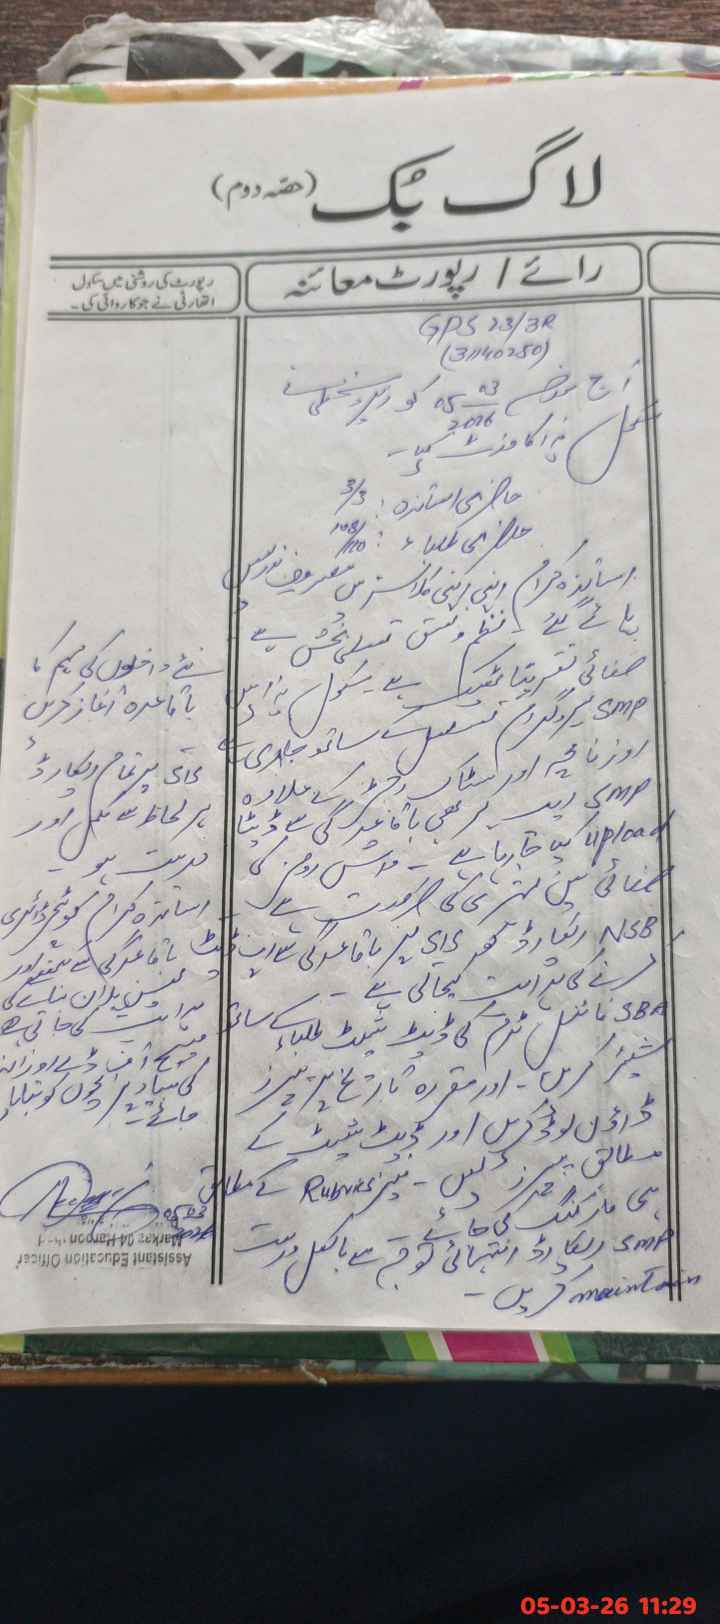 لاگ بک (حصہ دوم)
رائے / رپورٹ معائنہ
رپورٹ کی روشنی میں سکول
اتھارٹی نے جو کاروائی کی۔
GPS 23/3R
(31140250)
آج مورخہ 05-03-2026 کو زیر دستخطی نے
سکول ہذا کا وزٹ کیا۔
حاضری اساتذہ : 3/3
حاضری طلباء : 108/120
اساتذہ کرام اپنی اپنی کلاسز میں مصروف تدریس
پائے گئے۔ نظم و نسق تسلی بخش ہے۔
صفائی تقریباً ٹھیک ہے۔ سکول ہذا میں
SMP پروگرام تسلسل کے ساتھ جاری ہے
روزنامچہ اور سٹاک رجسٹر کے علاوہ
SMP ایپ پر بھی باقاعدگی سے ڈیٹا
Upload کیا جا رہا ہے۔ واش روم کی
صفائی میں بہتری کی ضرورت ہے۔
NSB ریکارڈ کو SIS پر باقاعدگی سے اپ ڈیٹ
کرنے کی ہدایت کی جاتی ہے۔
SBA فائنل ٹرم کی ڈیٹ شیٹ طلباء کے ساتھ
شیئر کریں۔ اور مقررہ تاریخ پر پیپرز
ڈاؤن لوڈ کریں اور ڈیٹ شیٹ کے
مطابق پیپرز لیں۔ Rubrics کے مطابق
ہی مارکنگ کی جائے
SMP ریکارڈ انتہائی توجہ سے بالکل درست
maintain کریں۔
نئے داخلوں کی مہم کا
باقاعدہ آغاز کریں
SIS پر تمام ریکارڈ
ہر لحاظ سے مکمل اور
درست ہو۔
اساتذہ کرام کو ٹیچر ڈائری
باقاعدگی سے لکھنے اور
لیسن پلان بنانے کی
ہدایت کی جاتی ہے
میسج آف ڈے روزانہ
کی بنیاد پر بچوں کو بتایا
جائے۔
05-03-2026
Assistant Education Officer
Markaz 04 Haroon
05-03-26 11:29